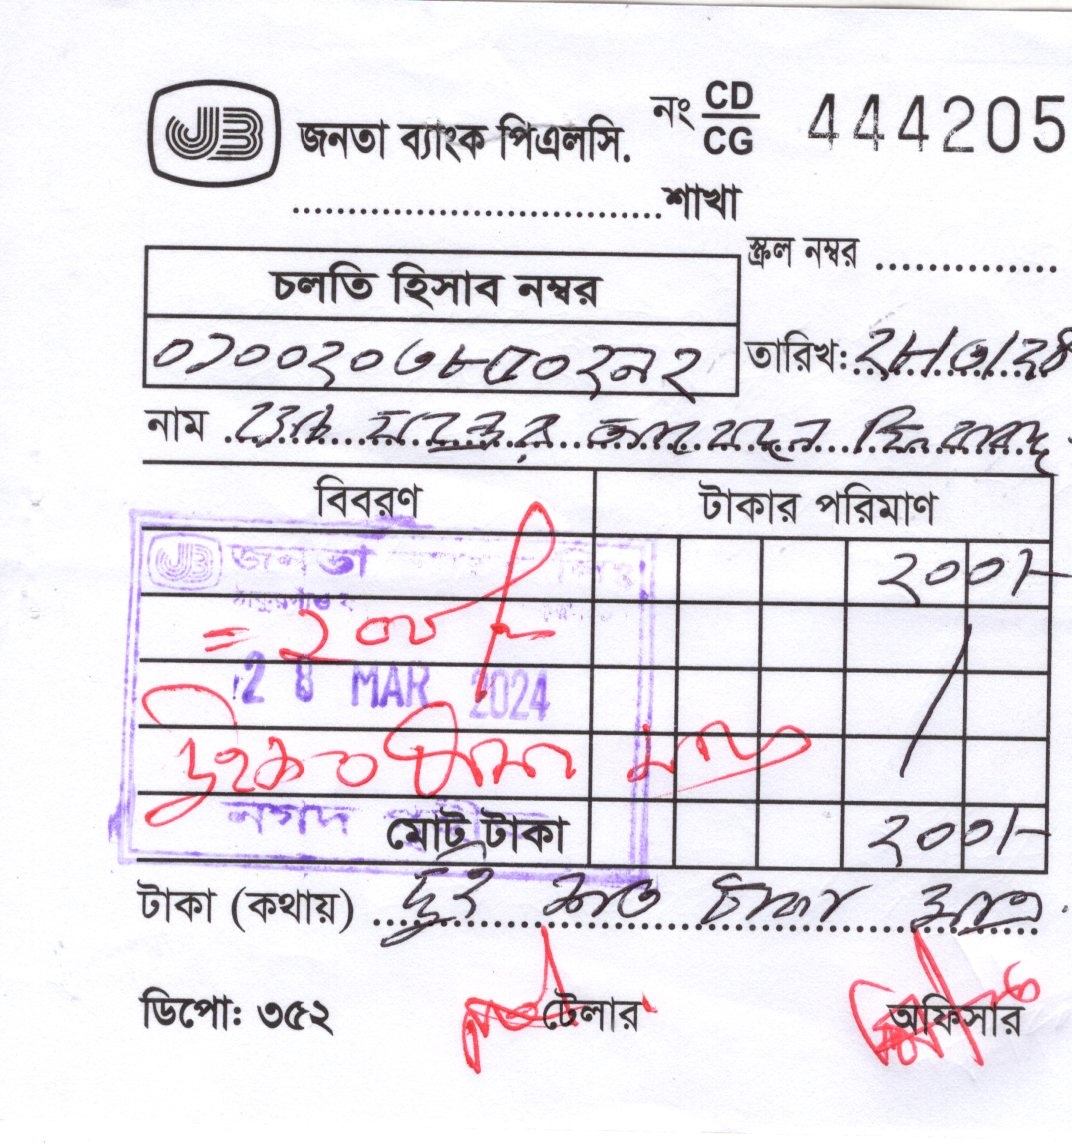 JB জনতা ব্যাংক পিএলসি. নং CD/CG 444205
..................................শাখা
স্ক্রল নম্বর ................
চলতি হিসাব নম্বর
তারিখ: ২৮/৩/২৪
নাম
বিবরণ টাকার পরিমাণ
JB জনতা
২০০/-
= ২০০/-
28 MAR 2024
দুইশত টাকা মাত্র
নগদ
মোট টাকা ২০০/-
টাকা (কথায়) দুই শত টাকা মাত্র
ডিপো: ৩৫২ টেলার অফিসার